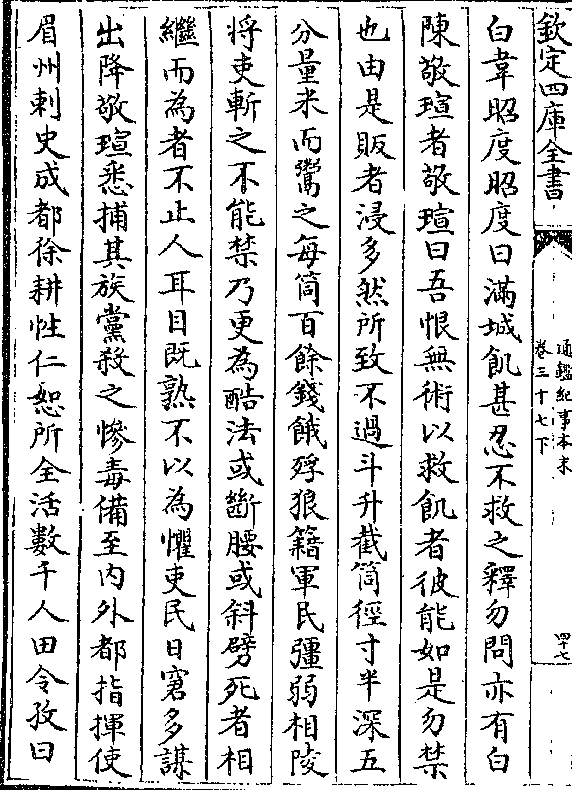 欽定四庫全書
通鑑紀事本末
卷三十七下
四十七
白韋昭度昭度曰滿城飢甚忍不救之釋勿問亦有白
陳敬瑄者敬瑄曰吾恨無術以救飢者彼能如是勿禁
也由是販者浸多然所致不過斗升截筒徑寸半深五
分量米而鬻之每筒百餘錢餓殍狼籍軍民彊弱相陵
将吏斬之不能禁乃更為酷法或斷腰或斜劈死者相
繼而為者不止人耳目既熟不以為懼吏民日窘多謀
出降敬瑄悉捕其族黨殺之慘毒備至内外都指揮使
眉州刺史成都徐耕性仁恕所全活數千人田令孜曰